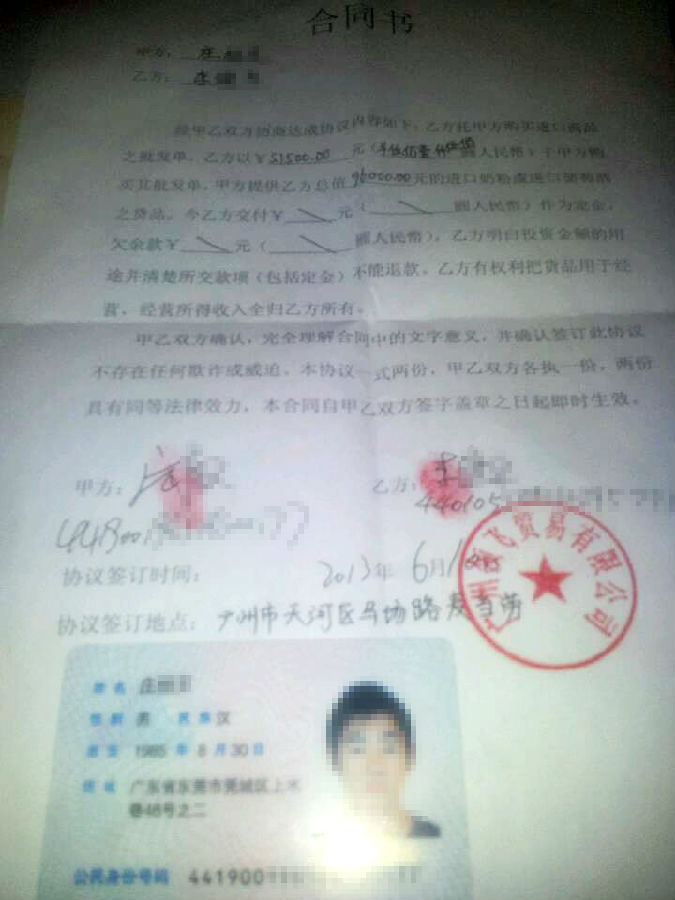 合同书
甲方：庄
乙方：李
经甲乙双方协商达成协议内容如下：乙方托甲方购买进口商品
之批发单，乙方以￥51500.00元（ 圆人民币）于甲方购
买其批发单，甲方提供乙方总值96000.00元的进口奶粉或进口
之货品，今乙方交付￥ 元（ 圆人民币）作为定金，
欠余款￥ 元（ 圆人民币），乙方明白投资金额的用
途并清楚所交款项（包括定金）不能退款，乙方有权利把货品用于经
营，经营所得收入全归乙方所有。
甲乙双方确认，完全理解合同中的文字意义，并确认签订此协议
不存在任何欺诈或威迫，本协议一式两份，甲乙双方各执一份，两份
具有同等法律效力，本合同自甲乙双方签字盖章之日起即时生效。
甲方：
乙方：
440105
协议签订时间：2013年6月1
协议签订地点：广州市天河区马场路麦当劳
广州 飞贸易有限公司
姓名 庄丽
性别 男 民族 汉
出生 1985年8月30日
住址 广东省东莞市莞城区上
巷46号之二
公民身份号码 441900